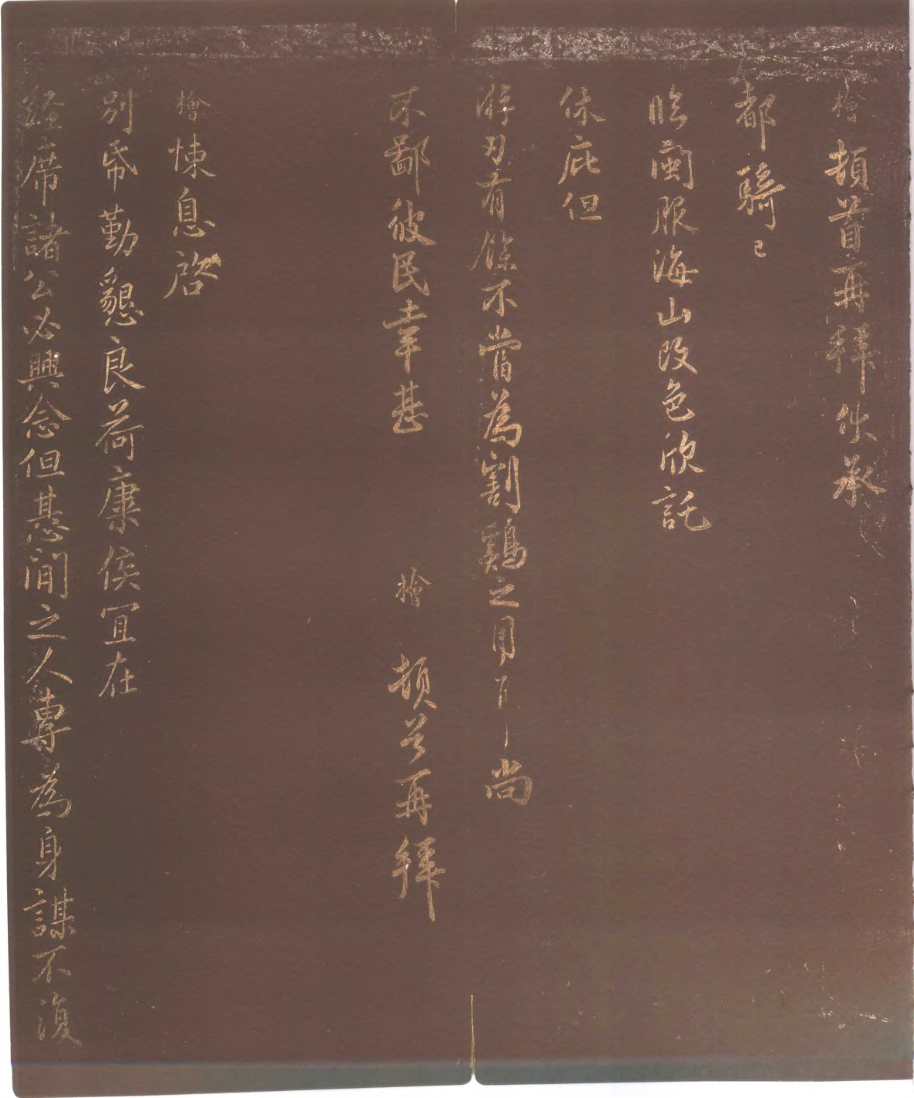 檜頓首再拜伏承
都騎已
臨閩服海山改色欣託
休庇但
游刃有餘不當為割鷄之用耳尚
不鄙彼民幸甚 檜 頓首再拜
檜悚息啓
別帋勤懇良荷康侯宜在
經席諸公必興念但甚間之人專為身謀不復